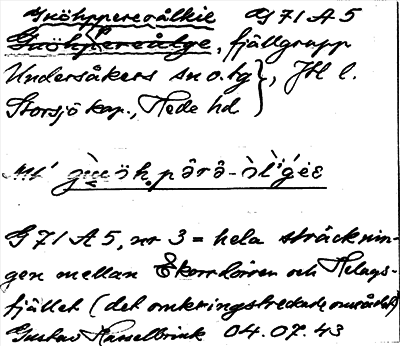 Gnöhppereålkie G 71 A 5
Gnöhpereålge, fjällgrupp
Undersåkers sn o. tg }, Jtl l.
Storsjö kap., Hede hd
G 71 A 5, nr 3 = hela sträcknin-
gen mellan Ekorrdörren och Helags-
fjället (det omkringstreckade området)
Gustav Hasselbrink 04.07.43